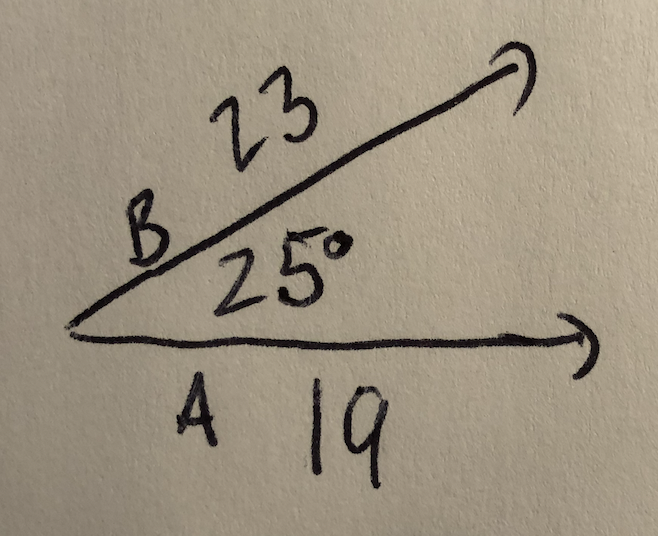 23
B
25°
A 19